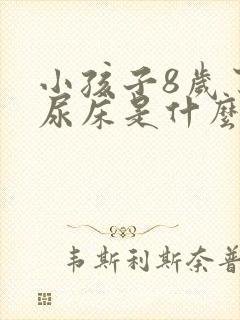 小孩子8歲
尿床是什麼
韦斯利斯奈普